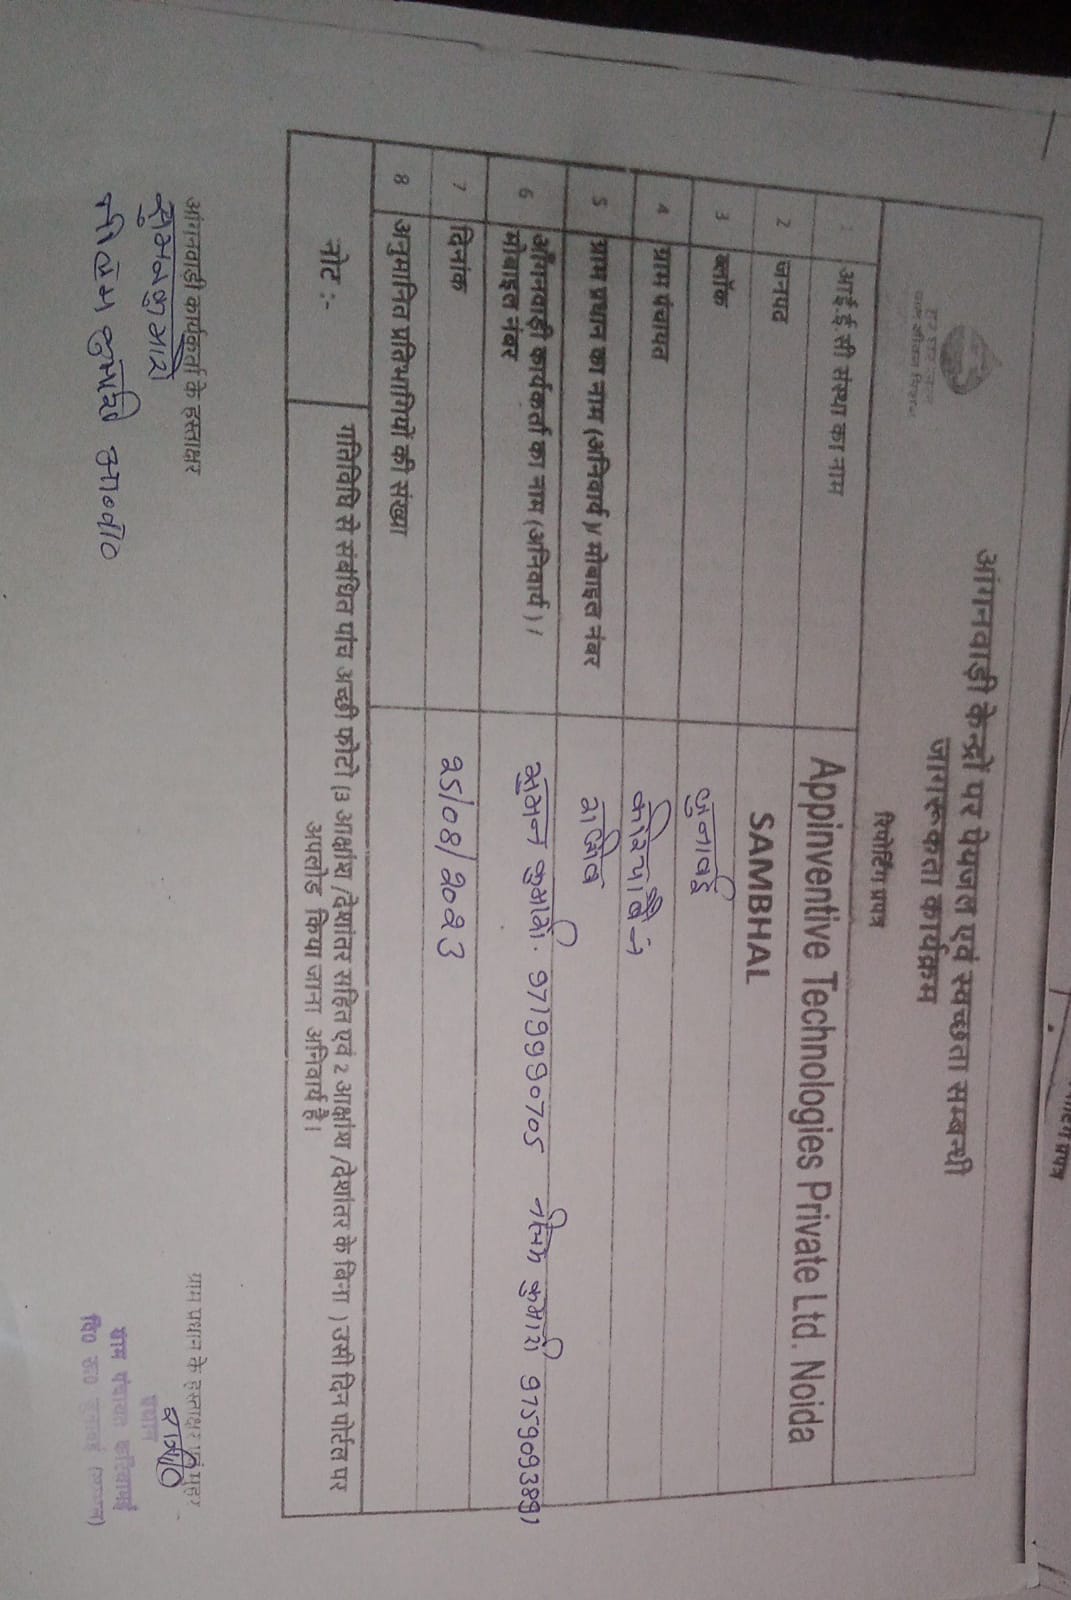 आंगनवाड़ी केन्द्रों पर पेयजल एवं स्वच्छता सम्बन्धी
जागरूकता कार्यक्रम
रिपोर्टिंग प्रपत्र
1 आई.ई.सी संस्था का नाम Appinventive Technologies Private Ltd. Noida
2 जनपद SAMBHAL
3 ब्लॉक जुनावई
4 ग्राम पंचायत
5 ग्राम प्रधान का नाम (अनिवार्य)/ मोबाइल नंबर
6 आँगनवाड़ी कार्यकर्ता का नाम (अनिवार्य) / मोबाइल नंबर सुमन कुमारी. 9719990705 नीलम कुमारी
7 दिनांक 25/08/2023
8 अनुमानित प्रतिभागियों की संख्या
नोट :- गतिविधि से संबंधित पांच अच्छी फोटो (3 आक्षांश /देशांतर सहित एवं 2 आक्षांश /देशांतर के बिना ) उसी दिन पोर्टल पर
अपलोड किया जाना अनिवार्य है।
आंगनवाड़ी कार्यकर्ता के हस्ताक्षर
सुमन कुमारी
ग्राम प्रधान के हस्ताक्षर एवं मुहर
प्रधान
ग्राम पंचायत